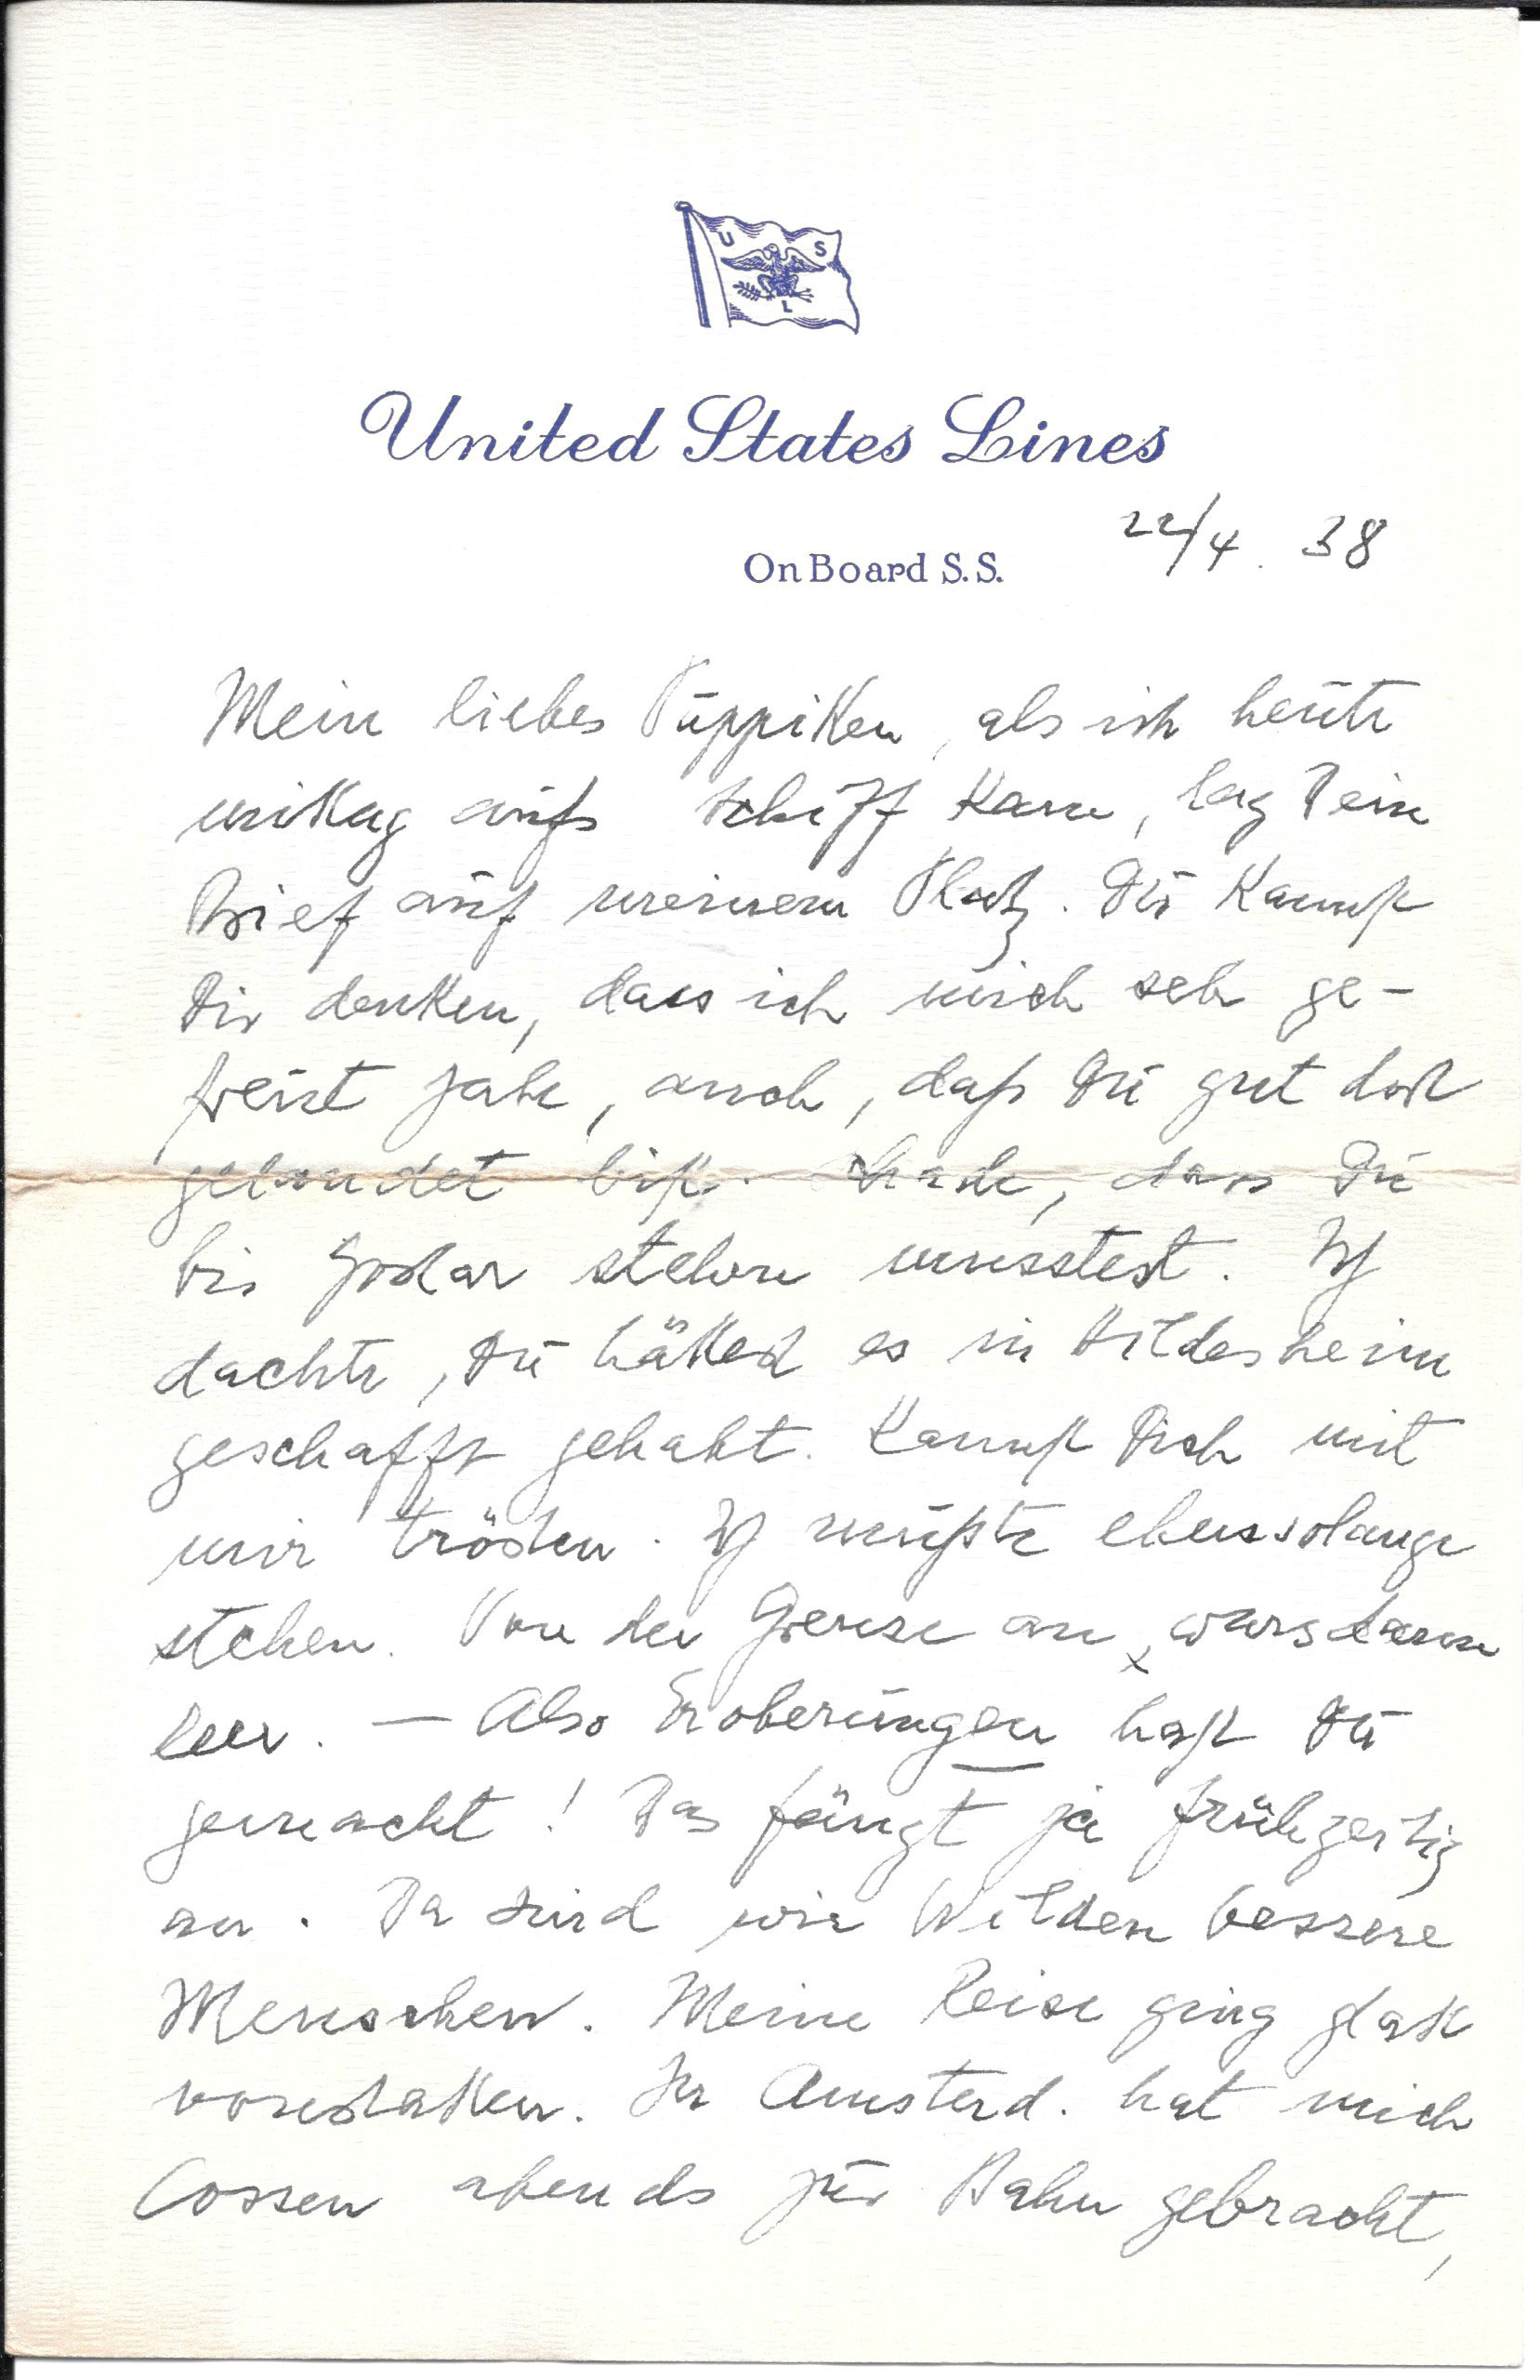 U S
L
United States Lines
On Board S.S.
22/4. 38
Mein liebes Püppiken, als ich heute
mittag aufs Schiff kam, lag Dein
Brief auf meinem Platz. Du kannst
Dir denken, dass ich mich seh ge-
freut habe, auch, daß Du gut dort
gelandet bist. Schade, dass Du
bis Goslar stehen musstest. Ich
dachte, Du hättest es in Hildesheim
geschafft gehabt. Kannst Dich mit
mir trösten. Ich mußte ebensolange
stehen. Von der Grenze an, wars dann
leer. — Also Eroberungen hast Du
gemacht! Das fängt ja frühzeitig
an. Da sind wir Wilden bessere
Menschen. Meine Reise ging glatt
vonstatten. In Amsterd. hat mich
Cossen abends zur Bahn gebracht,